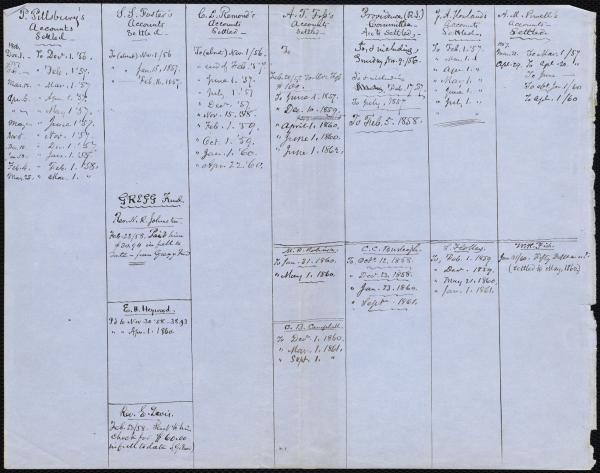 P. Pillsbury's
Accounts
Settled.
1856,
Dec. 1. To Dec. 1. '56.
1857
" Feb. 1. '57.
" Mar. 1. '57
" May 1. '57
May " June 1. '57.
Nov. 8. " Nov. 1. '57
" Dec. 1 '57
" Jan. 1. '58.
Feb. 4. " Feb. 1. '58
Mar. 25. " Mar. 1. "
S. S. Foster's
Accounts
Settled
To (about) Nov. 1/56
" Jan. 15, 1857.
" Feb. 16. 1857.
GREGG Fund.
Rev. N. R. Johnston
Feb. 23/58. Paid him
$30.94 in full to
date - from Gregg Fund
E. H. Heywood.
Pd to Nov. 30. 58. 38.93
" " Apr. 1. 1860.
Rev. E. Davis.
Feb. 23/58. Sent to him
check for $60.00
in full to date
C. L. Remond's
Accounts
Settled
To (about) Nov. 1/56.
" end of Feb. '57
" June 1. '57
" July 1. '57
" Dec. '57
" Nov. 15. '58
" Feb. 1. '59
" Oct. 1. '59.
" Jan. 1. '60
" Apr. 22. '60.
A. T. Foss's
Accounts
Settled.
To
$100.
" June 1. 1857.
" Dec. 10. 1859.
" April 1. 1860.
" June 1. 1860.
" June 1. 1862.
To Jan. 21. 1860.
" May 1. 1860.
C. B. Campbell
To Dec. 1. 1860.
" Mar. 1. 1861.
" Sept. 1. "
Providence (R.I.)
Committee
Ac'ts Settled,
To, & including
Sunday Nov. 9/56.
To & including
To July, 1857
To Feb. 5. 1858.
C. C. Burleigh.
To Oct. 12. 1858.
" Dec. 23, 1858.
" Jan. 23. 1860
" Sept. 1861.
J. A. Howland's
Accounts
Settled.
To Feb. 1. '57.
" Mar. 1. "
" Apr. 1. "
" May 1. "
" June 1. "
" July 1. "
S. Holley.
To Feb. 1. 1859
" Dec. 1859.
" May 21. 1860
" Jan. 1. 1861.
A. M. Powell's
Accounts
Settled
1857.
To Mar. 1/57
Apr. 29. To Apl. 20. "
To June
To Jan. 1/60
To Apl. 1/60
W. H. Fish.
(settled to May, 1860)